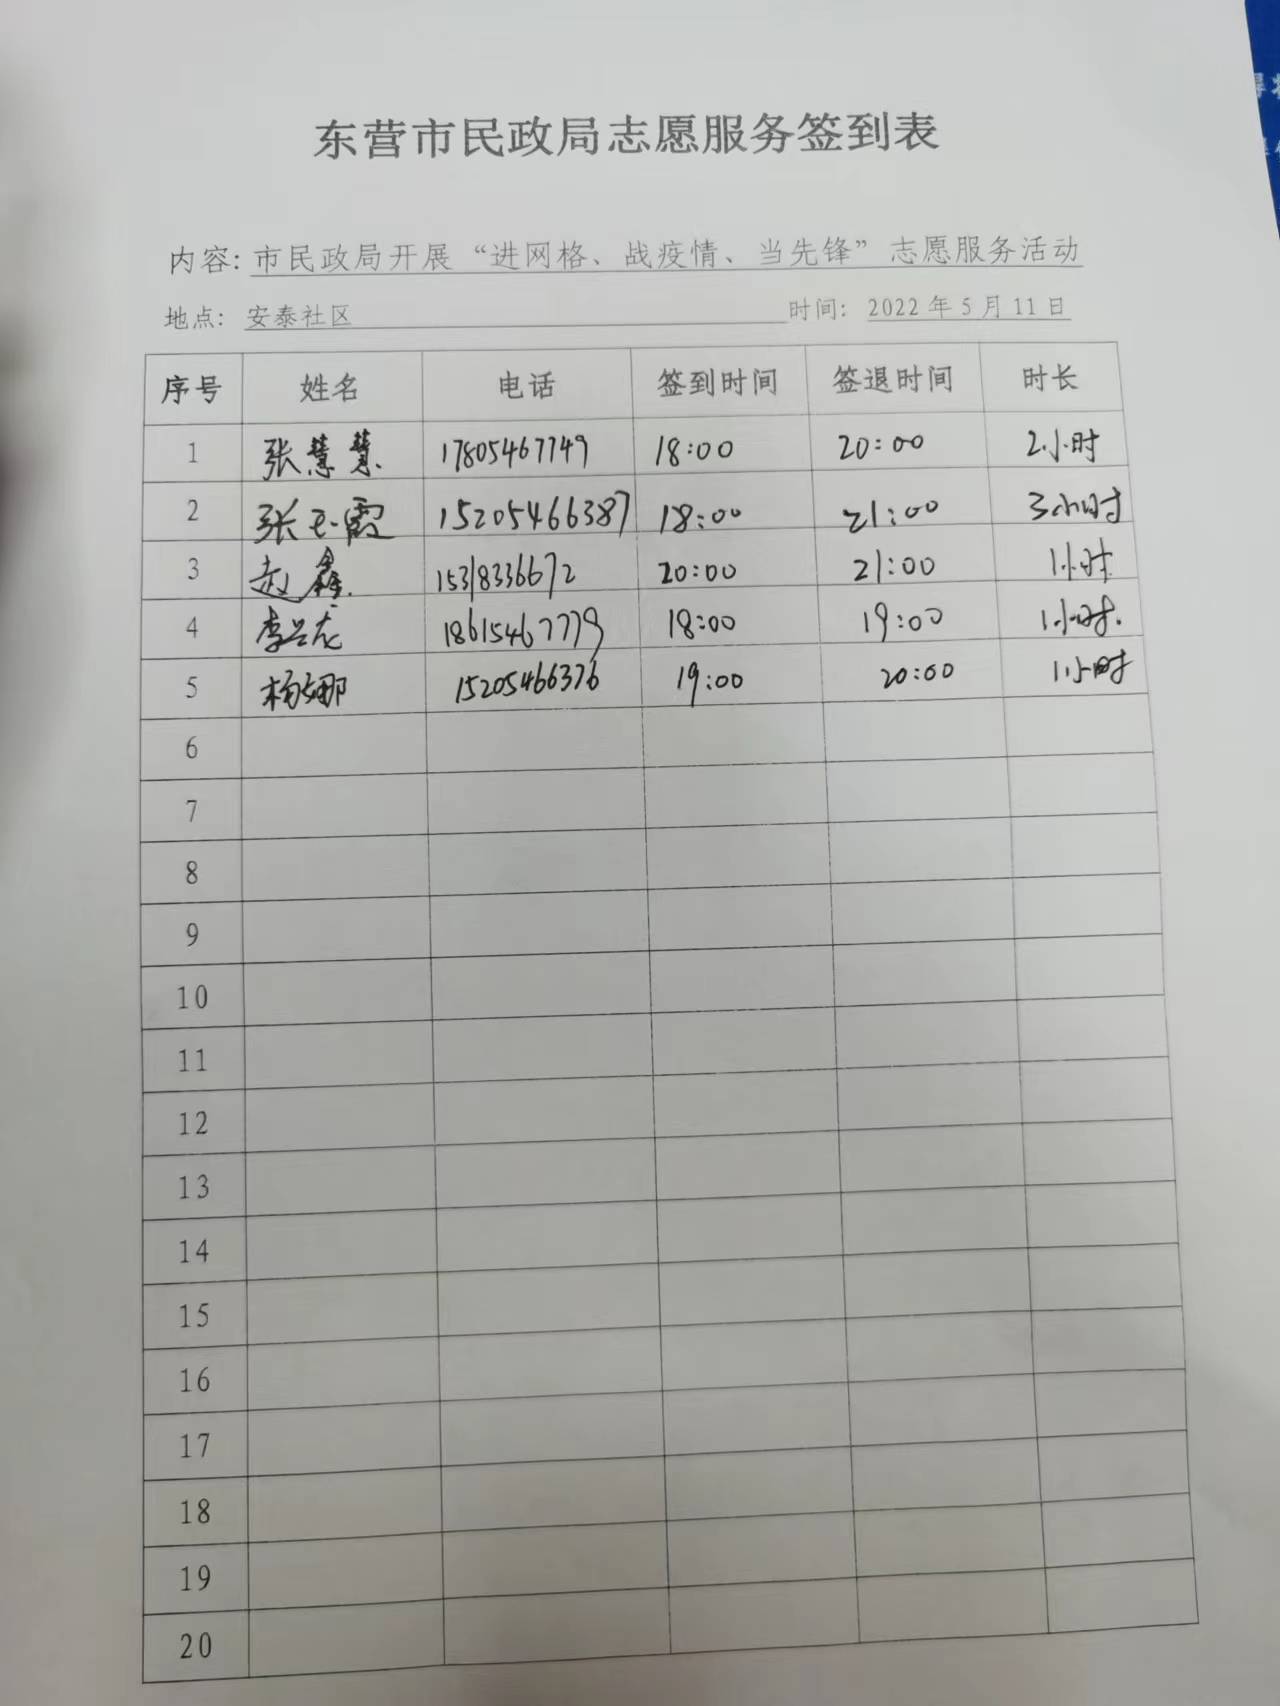 东营市民政局志愿服务签到表
内容: 市民政局开展“进网格、战疫情、当先锋”志愿服务活动
地点: 安泰社区 时间: 2022年5月11日
序号 姓名 电话 签到时间 签退时间 时长
1 张慧慧 17805467749 18:00 20:00 2小时
2 张玉霞 15205466387 18:00 21:00 3小时
3 赵鑫 15318336672 20:00 21:00 1小时
4 李兴龙 18615467779 18:00 19:00 1小时.
5 杨娜 15205466376 19:00 20:00 1小时
6
7
8
9
10
11
12
13
14
15
16
17
18
19
20